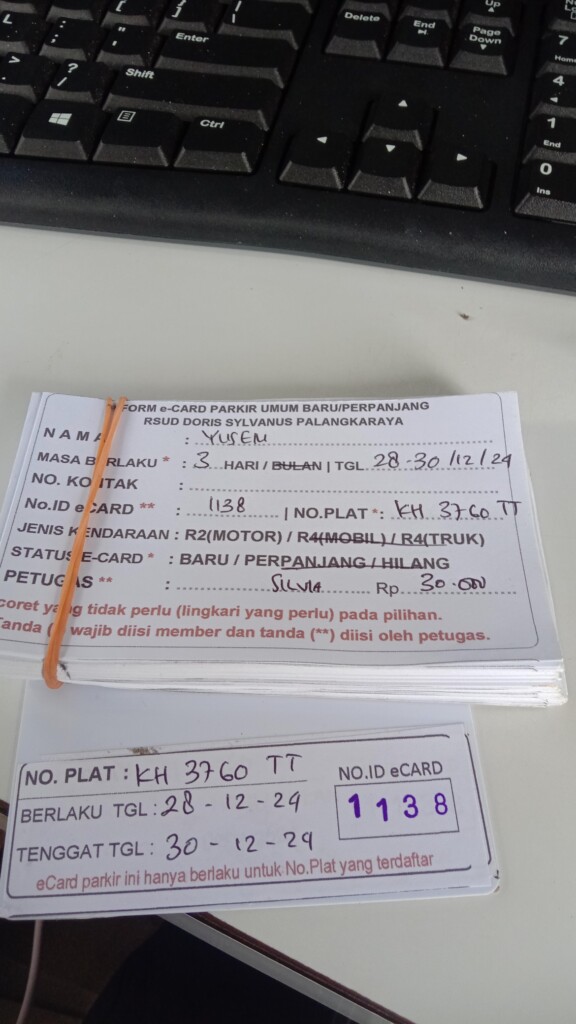 L
:
;
"
'
Enter
?
/
>
.
Shift
Ctrl
Delete
End
Up
Page
Down
7
Home
4
1
End
0
Ins
FORM e-CARD PARKIR UMUM BARU/PERPANJANG
RSUD DORIS SYLVANUS PALANGKARAYA
NAMA : YUSEM
MASA BERLAKU * : 3 HARI / BULAN | TGL 28-30/12/24
NO. KONTAK :
No.ID eCARD ** : 1138 | NO.PLAT *: KH 3760 TT
JENIS KENDARAAN : R2(MOTOR) / R4(MOBIL) / R4(TRUK)
STATUS E-CARD * : BARU / PERPANJANG / HILANG
PETUGAS ** : SILVIA Rp 30.000
coret yang tidak perlu (lingkari yang perlu) pada pilihan.
Tanda (*) wajib diisi member dan tanda (**) diisi oleh petugas.
NO. PLAT : KH 3760 TT
NO.ID eCARD
BERLAKU TGL : 28-12-24
1138
TENGGAT TGL : 30-12-24
eCard parkir ini hanya berlaku untuk No.Plat yang terdaftar